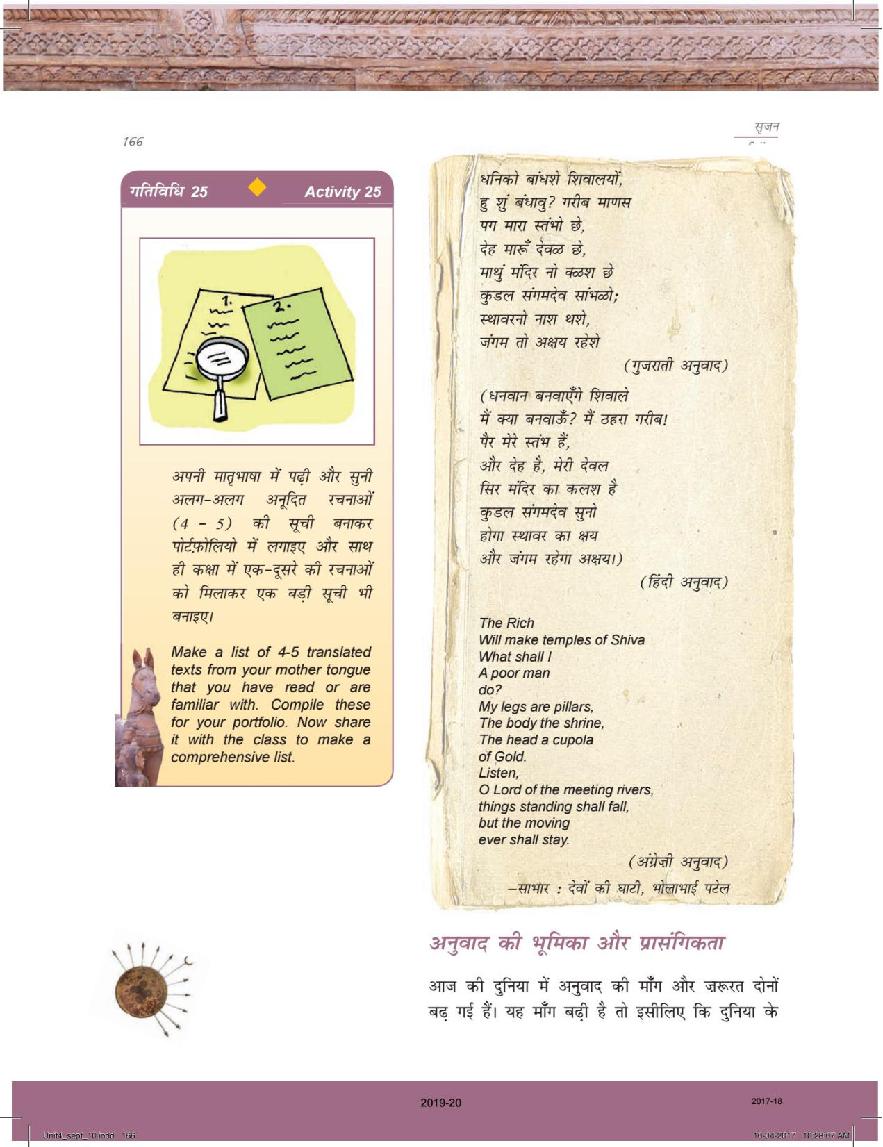 166
सृजन
गतिविधि 25
Activity 25
1.
2.
अपनी मातृभाषा में पढ़ी और सुनी
अलग-अलग अनूदित रचनाओं
(4 - 5) की सूची बनाकर
पोर्टफ़ोलियो में लगाइए और साथ
ही कक्षा में एक-दूसरे की रचनाओं
को मिलाकर एक बड़ी सूची भी
बनाइए।
Make a list of 4-5 translated
texts from your mother tongue
that you have read or are
familiar with. Compile these
for your portfolio. Now share
it with the class to make a
comprehensive list.
धनिको बांधशे शिवालयों,
हु शुं बंधावु? गरीब माणस
पग मारा स्तंभो छे,
देह मारूँ देवळ छे,
माथुं मंदिर नो कळश छे
कुडल संगमदेव सांभळो;
स्थावरनो नाश थशे,
जंगम तो अक्षय रहेशे
(गुजराती अनुवाद)
(धनवान बनवाएँगे शिवाले
मैं क्या बनवाऊँ? मैं ठहरा गरीब!
पैर मेरे स्तंभ हैं,
और देह है, मेरी देवल
सिर मंदिर का कलश है
कुडल संगमदेव सुनो
होगा स्थावर का क्षय
और जंगम रहेगा अक्षय।)
(हिंदी अनुवाद)
The Rich
Will make temples of Shiva
What shall I
A poor man
do?
My legs are pillars,
The body the shrine,
The head a cupola
of Gold.
Listen,
O Lord of the meeting rivers,
things standing shall fall,
but the moving
ever shall stay.
(अंग्रेज़ी अनुवाद)
–साभार : देवों की घाटी, भोलाभाई पटेल
अनुवाद की भूमिका और प्रासंगिकता
आज की दुनिया में अनुवाद की माँग और ज़रूरत दोनों
बढ़ गई हैं। यह माँग बढ़ी है तो इसीलिए कि दुनिया के
2019-20
2017-18
Unit4_sept_10.indd 166